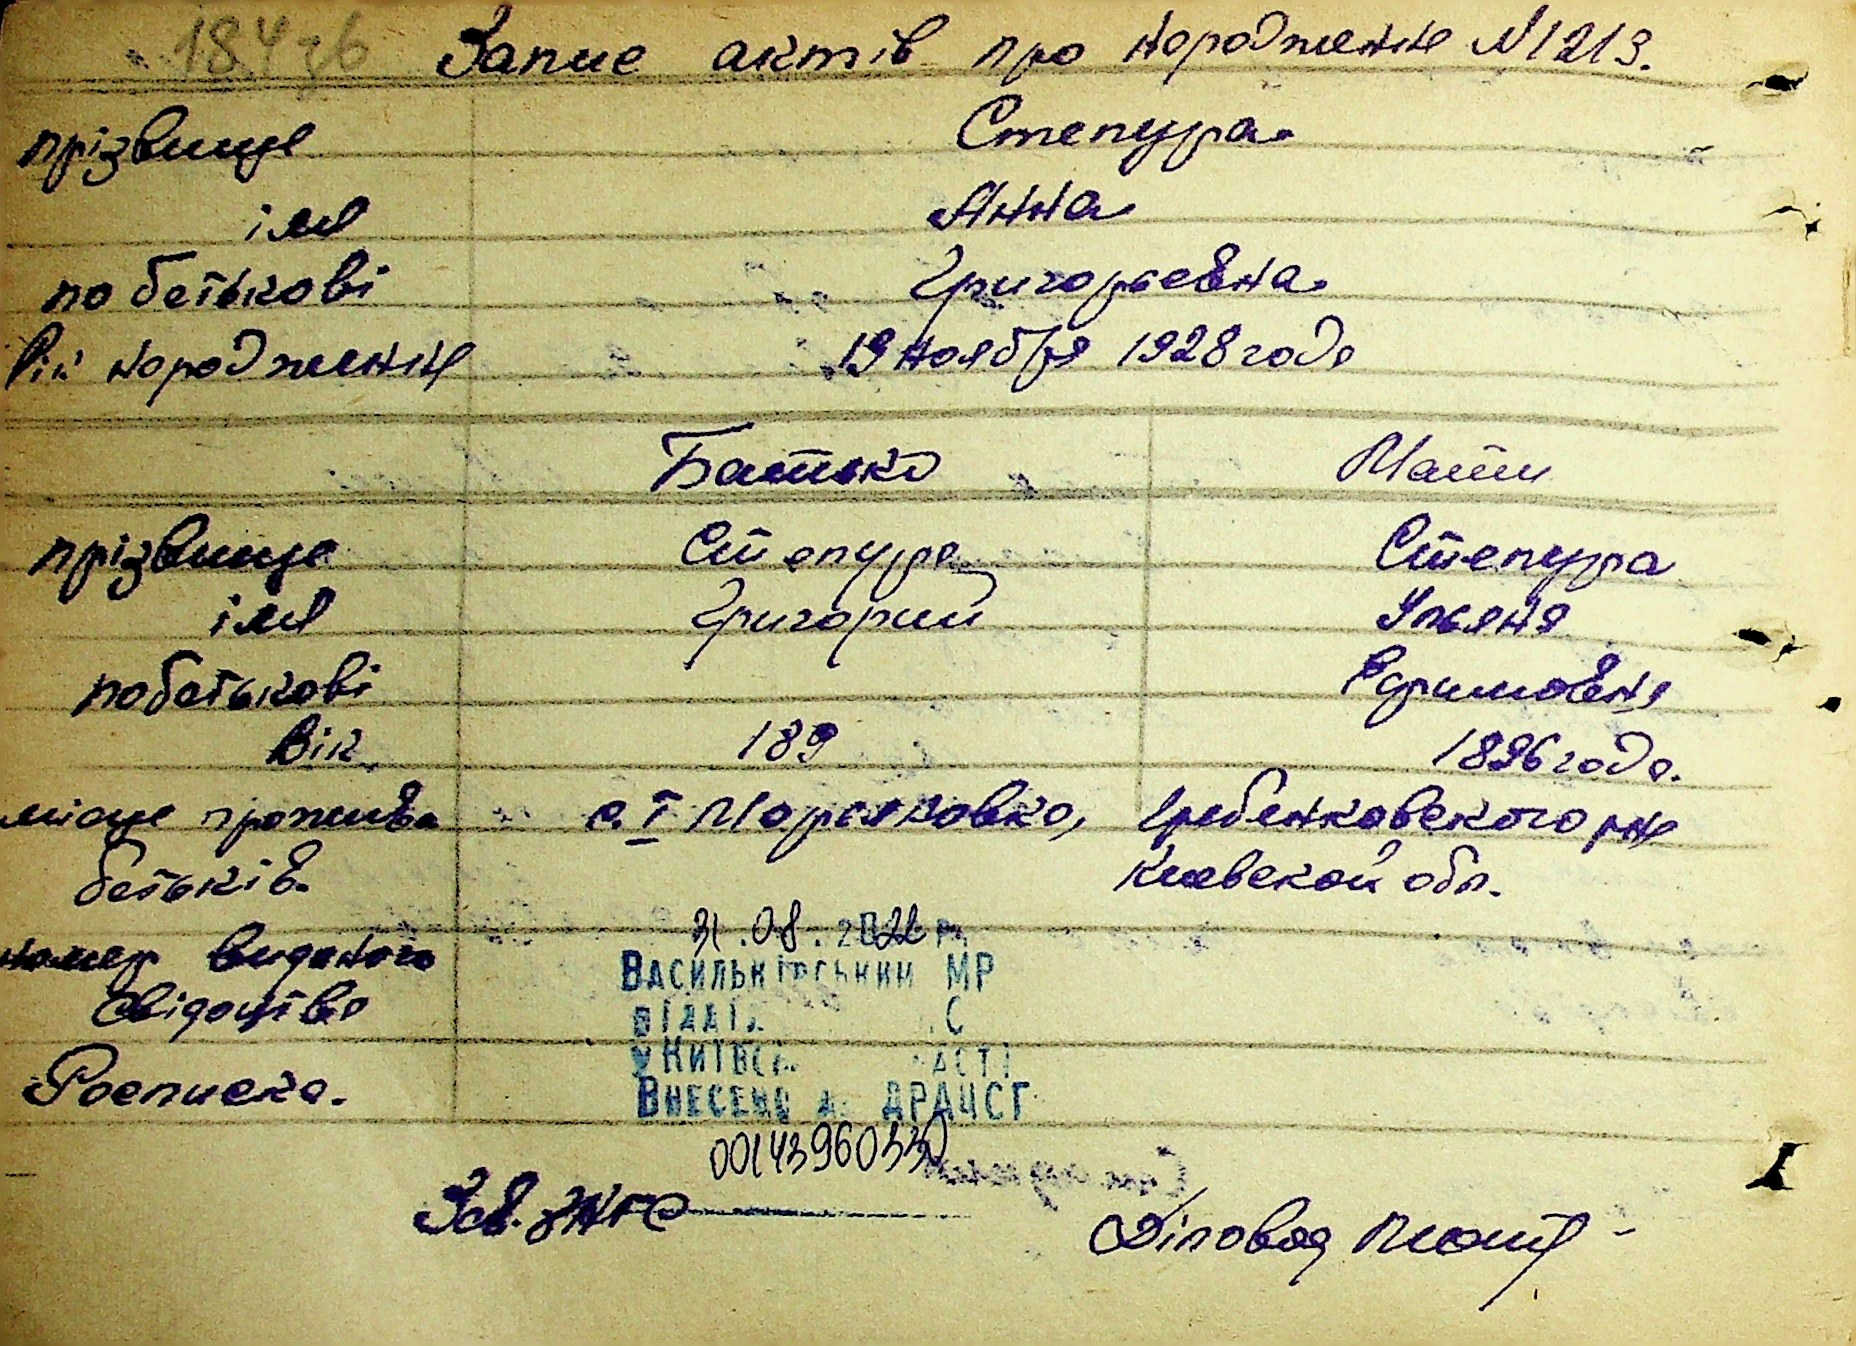 Запис актів про народження N1213.
прізвище Степура
імя Анна
по батькові Григорьевна
Вік народження 19 ноября 1928 года
Батько Мати
прізвище Степура Степура
імя Григорий Ульяна
по батькові Ефимовна
Вік 189 1896 года.
місце прожива с. I Марьяновка, Гребенковского рна
батьків. Киевской обл.
номер виданого 31.08.2022 р.
Васильківський МР
свідоцтва відділ С
у Київсь асті
Розписка. Внесено д ДРАЦСГ
00143960330
Зав. ЗАГС Діловод